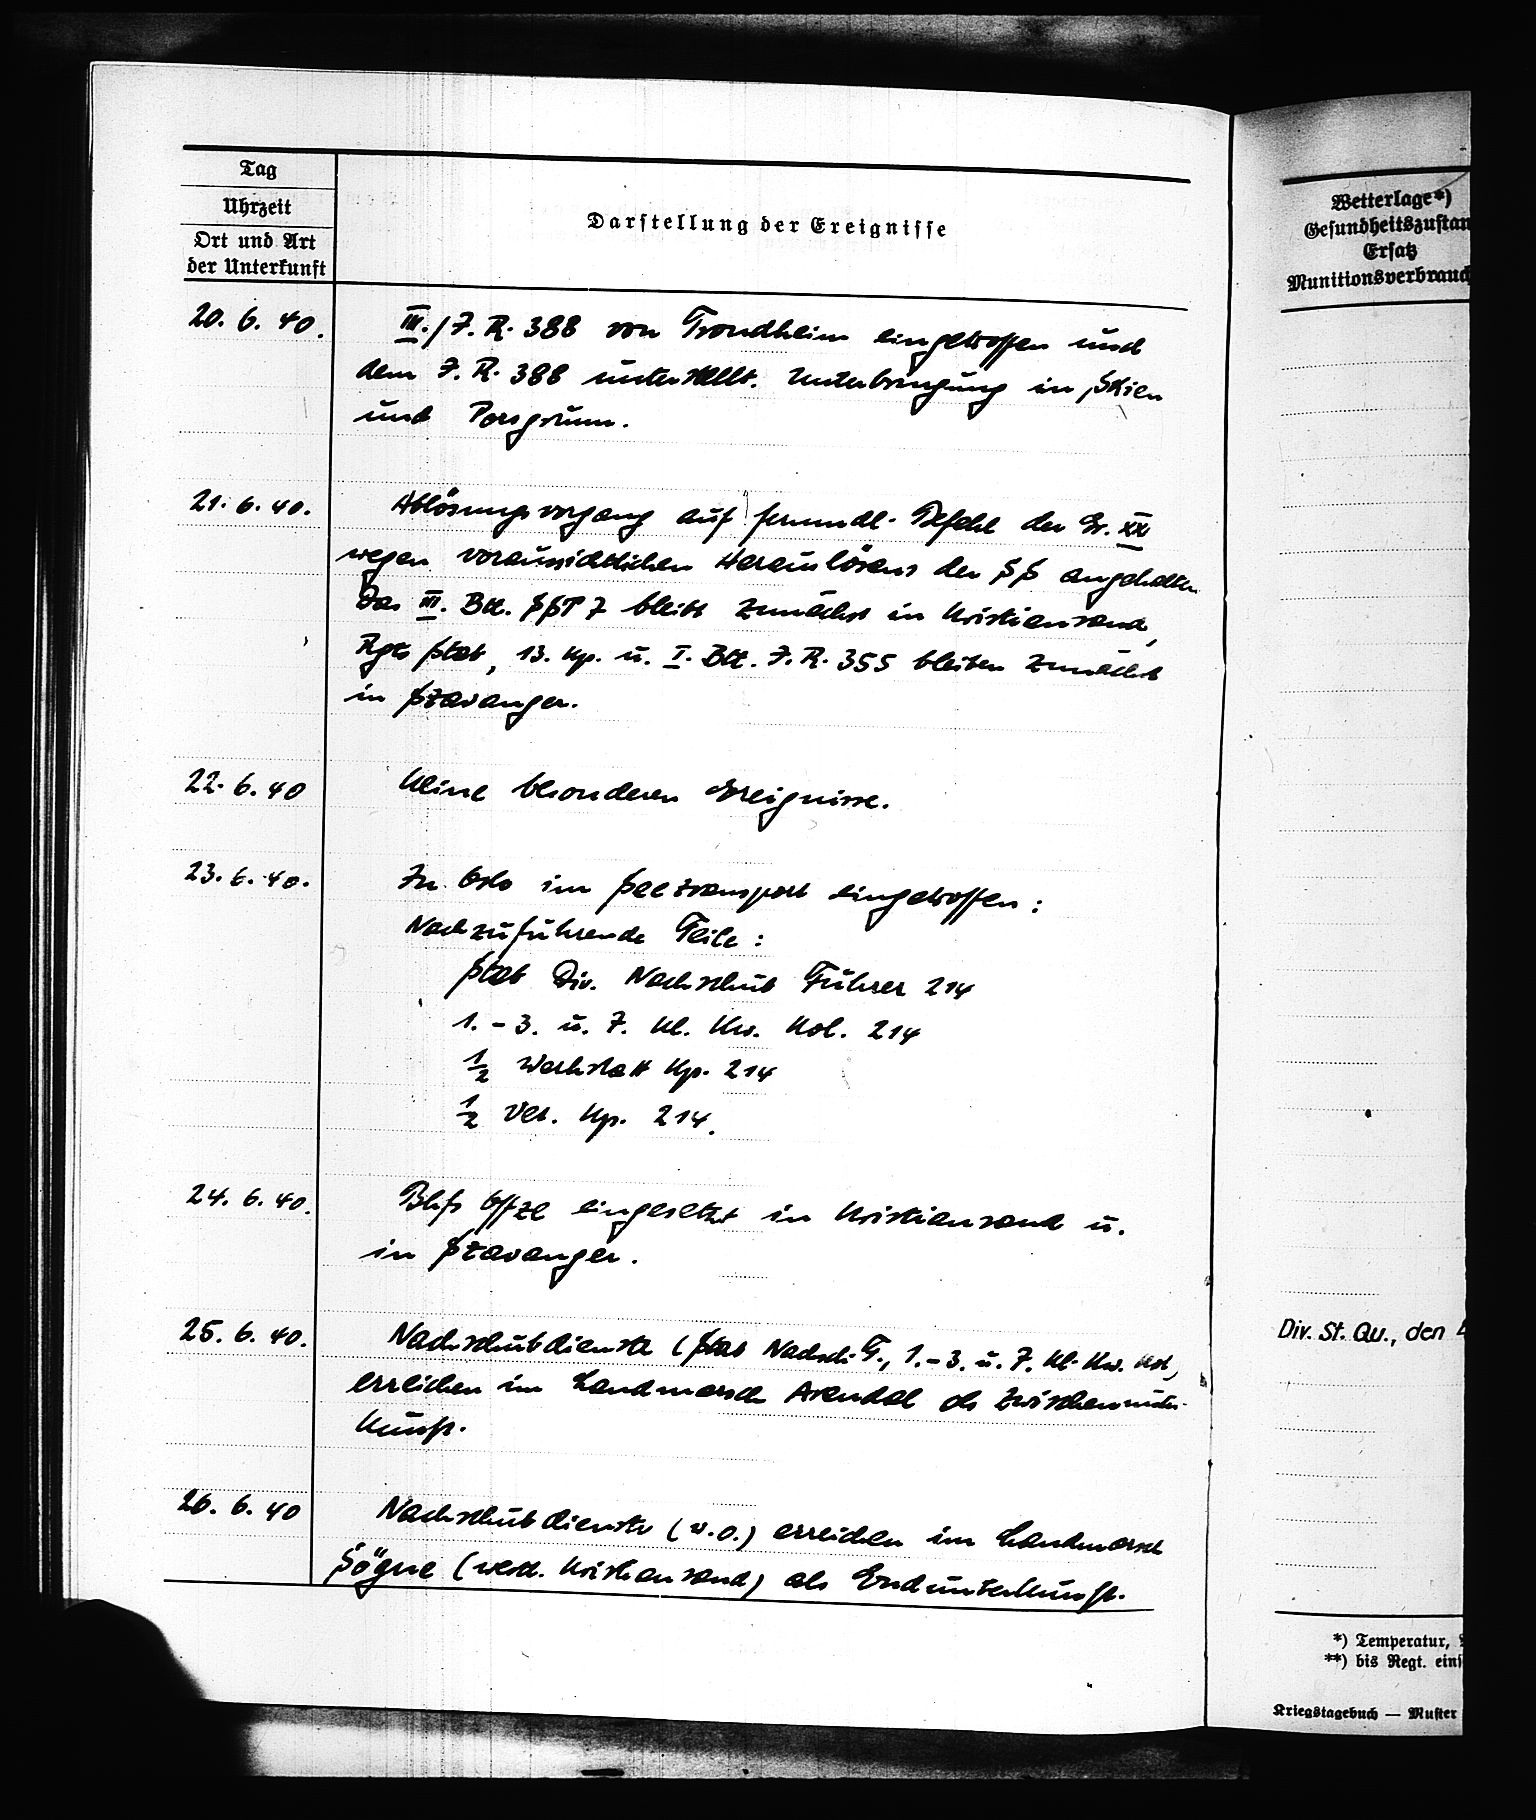 Tag
Uhrzeit
Ort und Art
der Unterkunft
Darstellung der Ereignisse
20. 6. 40.
III./J.R. 388 von Trondheim eingetroffen und
dem J.R. 388 unterstellt. Unterbringung in Skien
und Porsgrunn.
21. 6. 40.
Ablösungsvorgang auf fernmdl. Befehl der Gr. XXI
wegen voraussichtlichen Herauslösens der SS angehalten.
Das III. Btl. SST 7 bleibt zunächst in Kristiansand,
Rgts Stab, 13. Kp. u. I. Btl. J.R. 355 bleiben zunächst
in Stavanger.
22. 6. 40
Keine besonderen Ereignisse.
23. 6. 40.
In Oslo im Seetransport eingetroffen:
Nachzuführende Teile:
Stab Div. Nachschub Führer 214
1. - 3. u. 7. Kl. Kw. Kol. 214
1/2 Werkstatt Kp. 214
1/2 Vet. Kp. 214.
24. 6. 40.
Offze eingesetzt in Kristiansand u.
in Stavanger.
25. 6. 40.
Nachschubdienste (Stab Nachsch. F., 1. - 3. u. 7. Kl. Kw. Kol.)
erreichen im Landmarsch Arendal als Zwischenunter-
kunft.
26. 6. 40
Nachschubdienste (w. o.) erreichen im Landmarsch
Sögne (westl. Kristiansand) als Endunterkunft.
Wetterlage*)
Gesundheitszustan
Ersatz
Munitionsverbrauch
Div. St. Qu., den
*) Temperatur,
**) bis Regt. eins
Kriegstagebuch — Muster